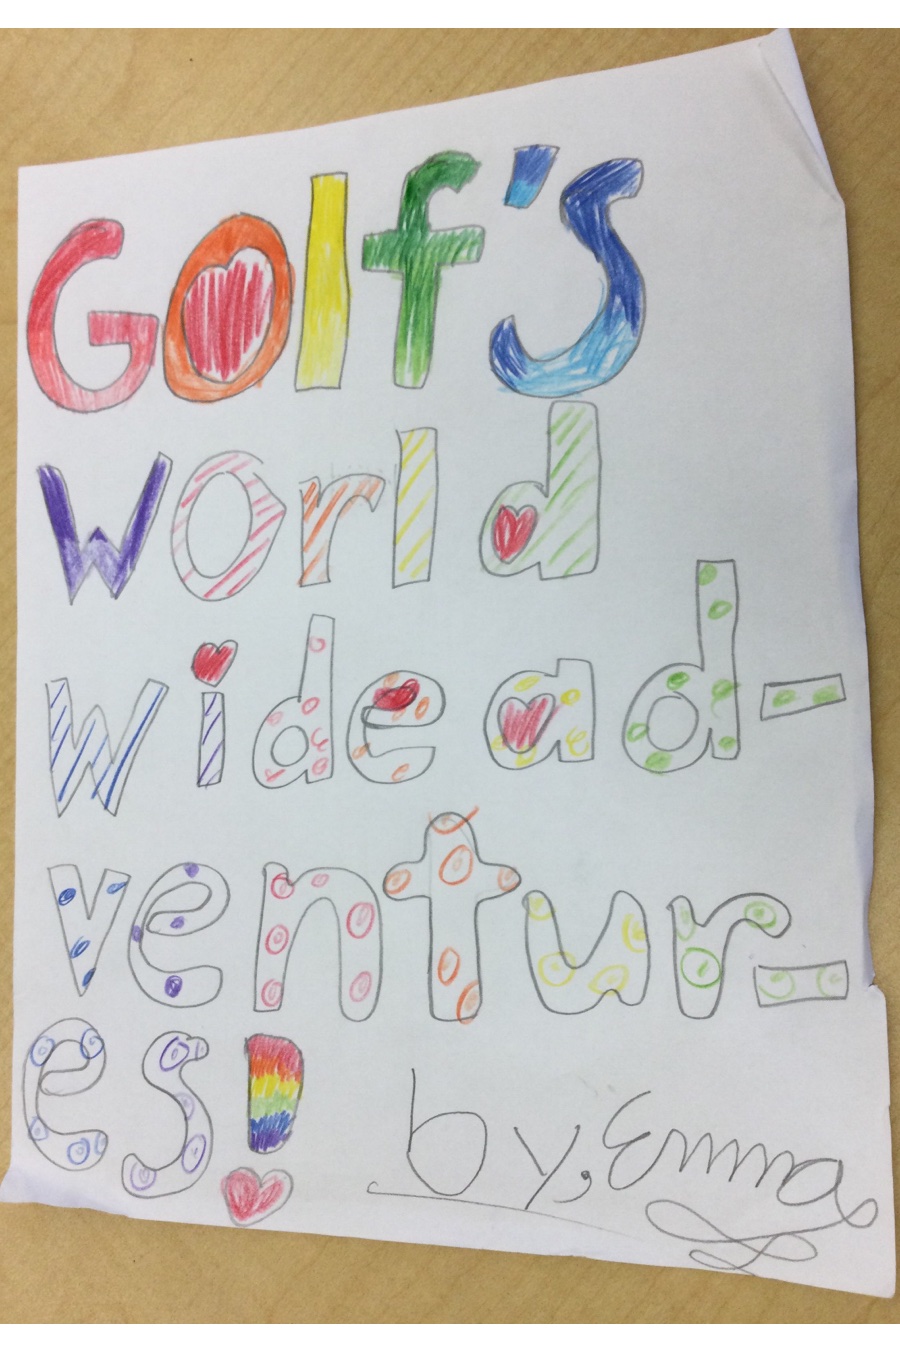 Golf's
world
wide ad-
ventur-
es!
by, Emma